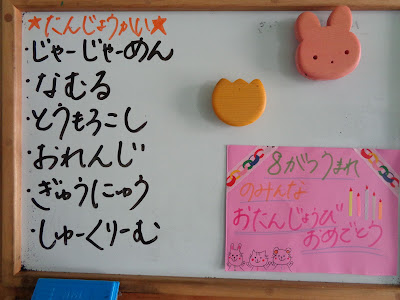 ★たんじょうかい★
・じゃーじゃーめん
・なむる
・とうもろこし
・おれんじ
・ぎゅうにゅう
・しゅーくりーむ
8がつうまれ
のみんな
おたんじょうび
おめでとう